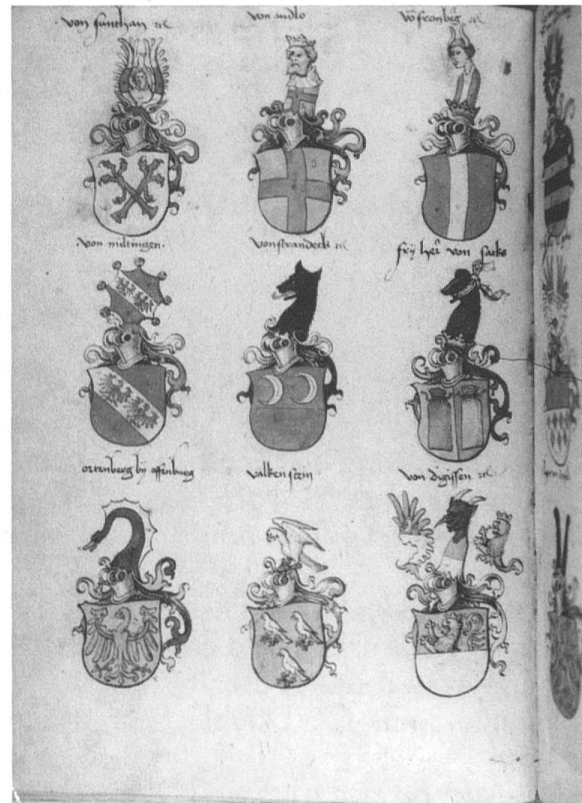 von sunthan etc
von andlo
vō fronbẽg etc
von miltingen.
von strandeck etc
frÿ heR von sacks
ortenburg bÿ offenburg
valkenstein
von digissen etc